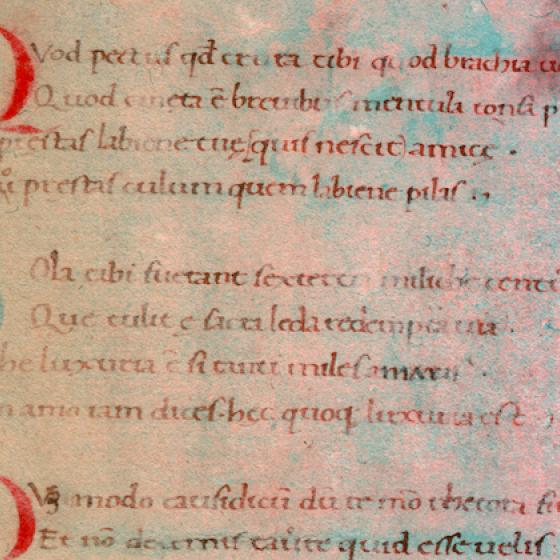 Vod pectus qd crura tibi quod brachia
Quod cincta ē brevibus mentula tonsa p
prestas labiene tue (quis nescit) amice .
prestas culum quem labiene pilis .,
Ola tibi fuerant sexterti milia centū
Que tulit e sacra leda redempta via .
he luxuria ē si tanti miles amaris .
amo iam dices hec quoq luxuria est
modo causidicū du te mō rhetora
Et nō decernis taure quid esse velis